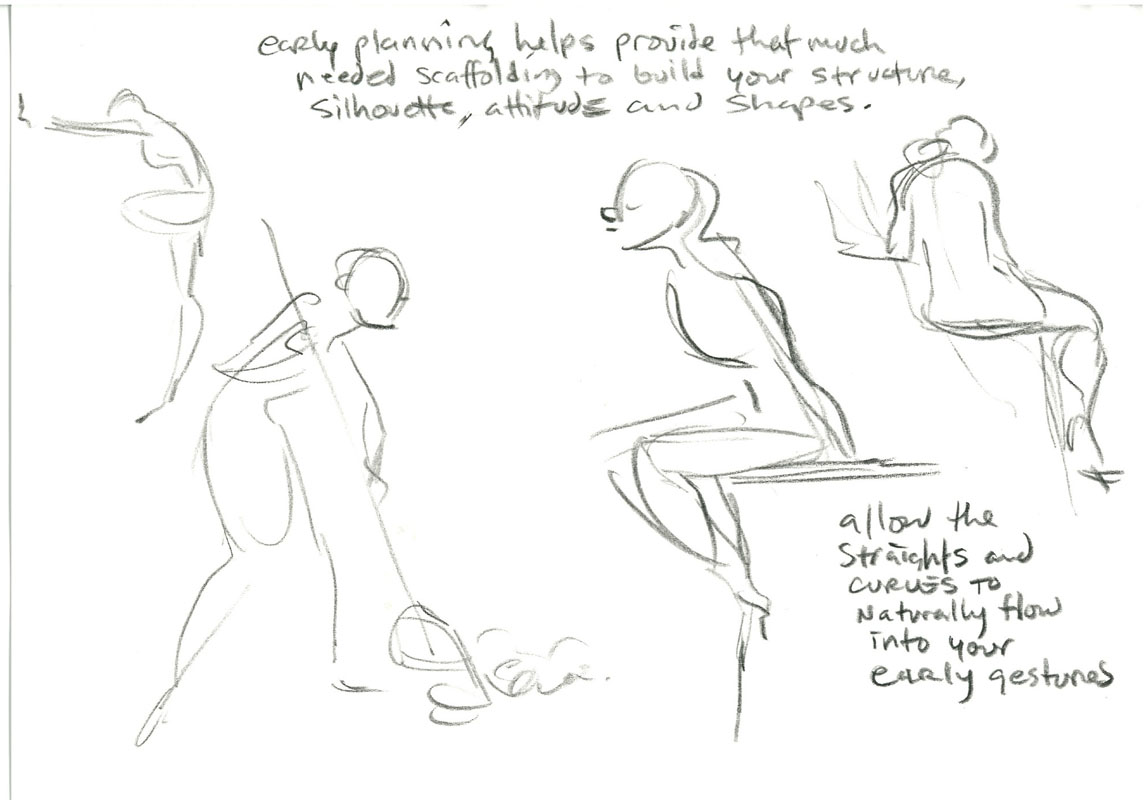 early planning helps provide that much
needed scaffolding to build your structure,
silhouette, attitude and shapes.
allow the
straights and
CURVES TO
Naturally flow
into your
early gestures